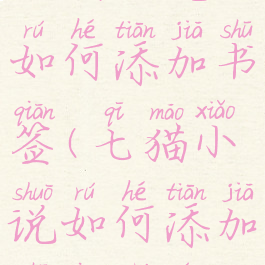 rú hé tiān jiā shū
如何添加书
qiān qī māo xiǎo
签(七猫小
shuō rú hé tiān jiā
说如何添加